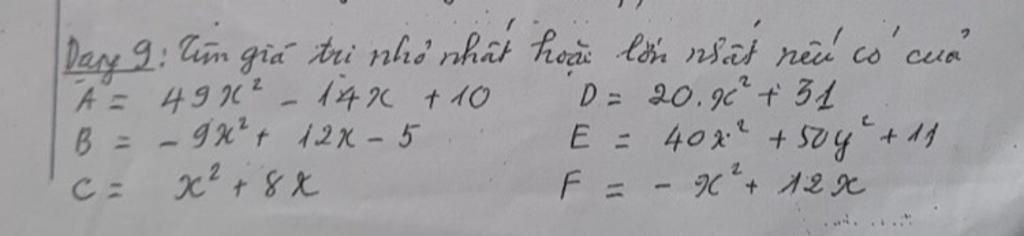 Dạng 9: Tìm giá trị nhỏ nhất hoặc lớn nhất nếu có của
A = 49x² - 14x + 10
D = 20.x² + 31
B = - 9x² + 12x - 5
E = 40x² + 50y² + 11
C = x² + 8x
F = - x² + 12x